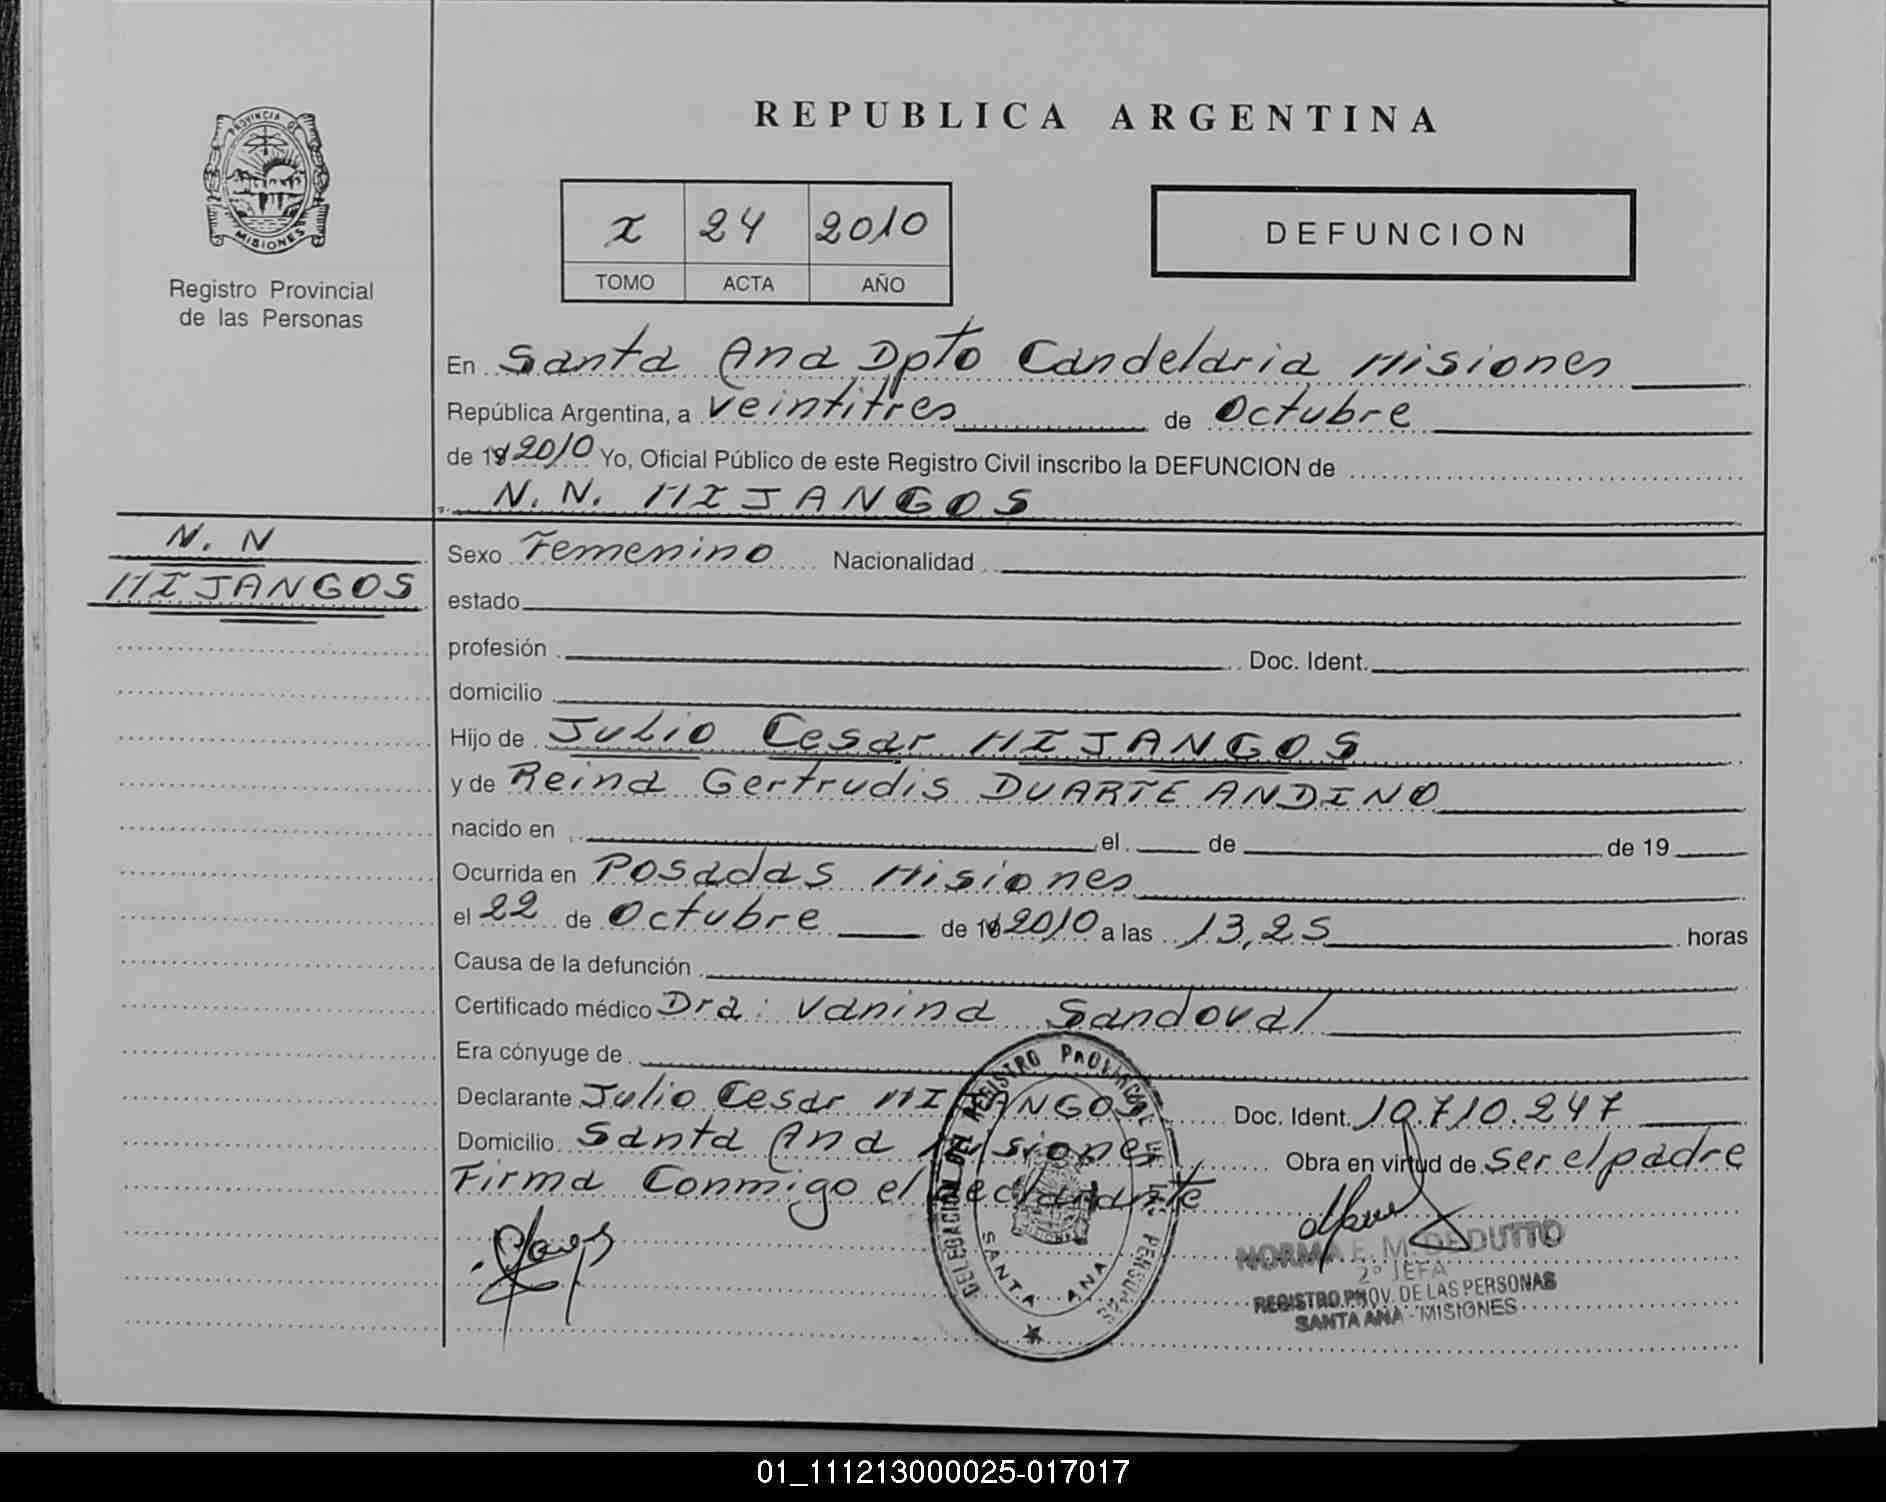 REPUBLICA ARGENTINA
PROVINCIA DE
MISIONES
Registro Provincial
de las Personas
I 24 2010
TOMO ACTA AÑO
DEFUNCION
En Santa Ana Dpto Candelaria Misiones
República Argentina, a veintitres de Octubre
de 19 2010 Yo, Oficial Público de este Registro Civil inscribo la DEFUNCION de
N. N. MIJANGOS
N. N
MIJANGOS
Sexo Femenino Nacionalidad
estado
profesión Doc. Ident.
domicilio
Hijo de Julio Cesar MIJANGOS
y de Reina Gertrudis DUARTE ANDINO
nacido en el de de 19
Ocurrida en Posadas Misiones
el 22 de Octubre de 19 2010 a las 13,25 horas
Causa de la defunción
Certificado médico Dra: Vanina Sandoval
Era cónyuge de
Declarante Julio Cesar MIJANGOS Doc. Ident. 10.710.247
Domicilio Santa Ana Misiones Obra en virtud de ser el padre
Firma Conmigo el declarante
DELEGACION DEL REGISTRO PROVINCIAL DE LAS PERSONAS
SANTA ANA
NORMA E. M. DEDUTTO
2º JEFA
REGISTRO PROV. DE LAS PERSONAS
SANTA ANA - MISIONES
01_111213000025-017017